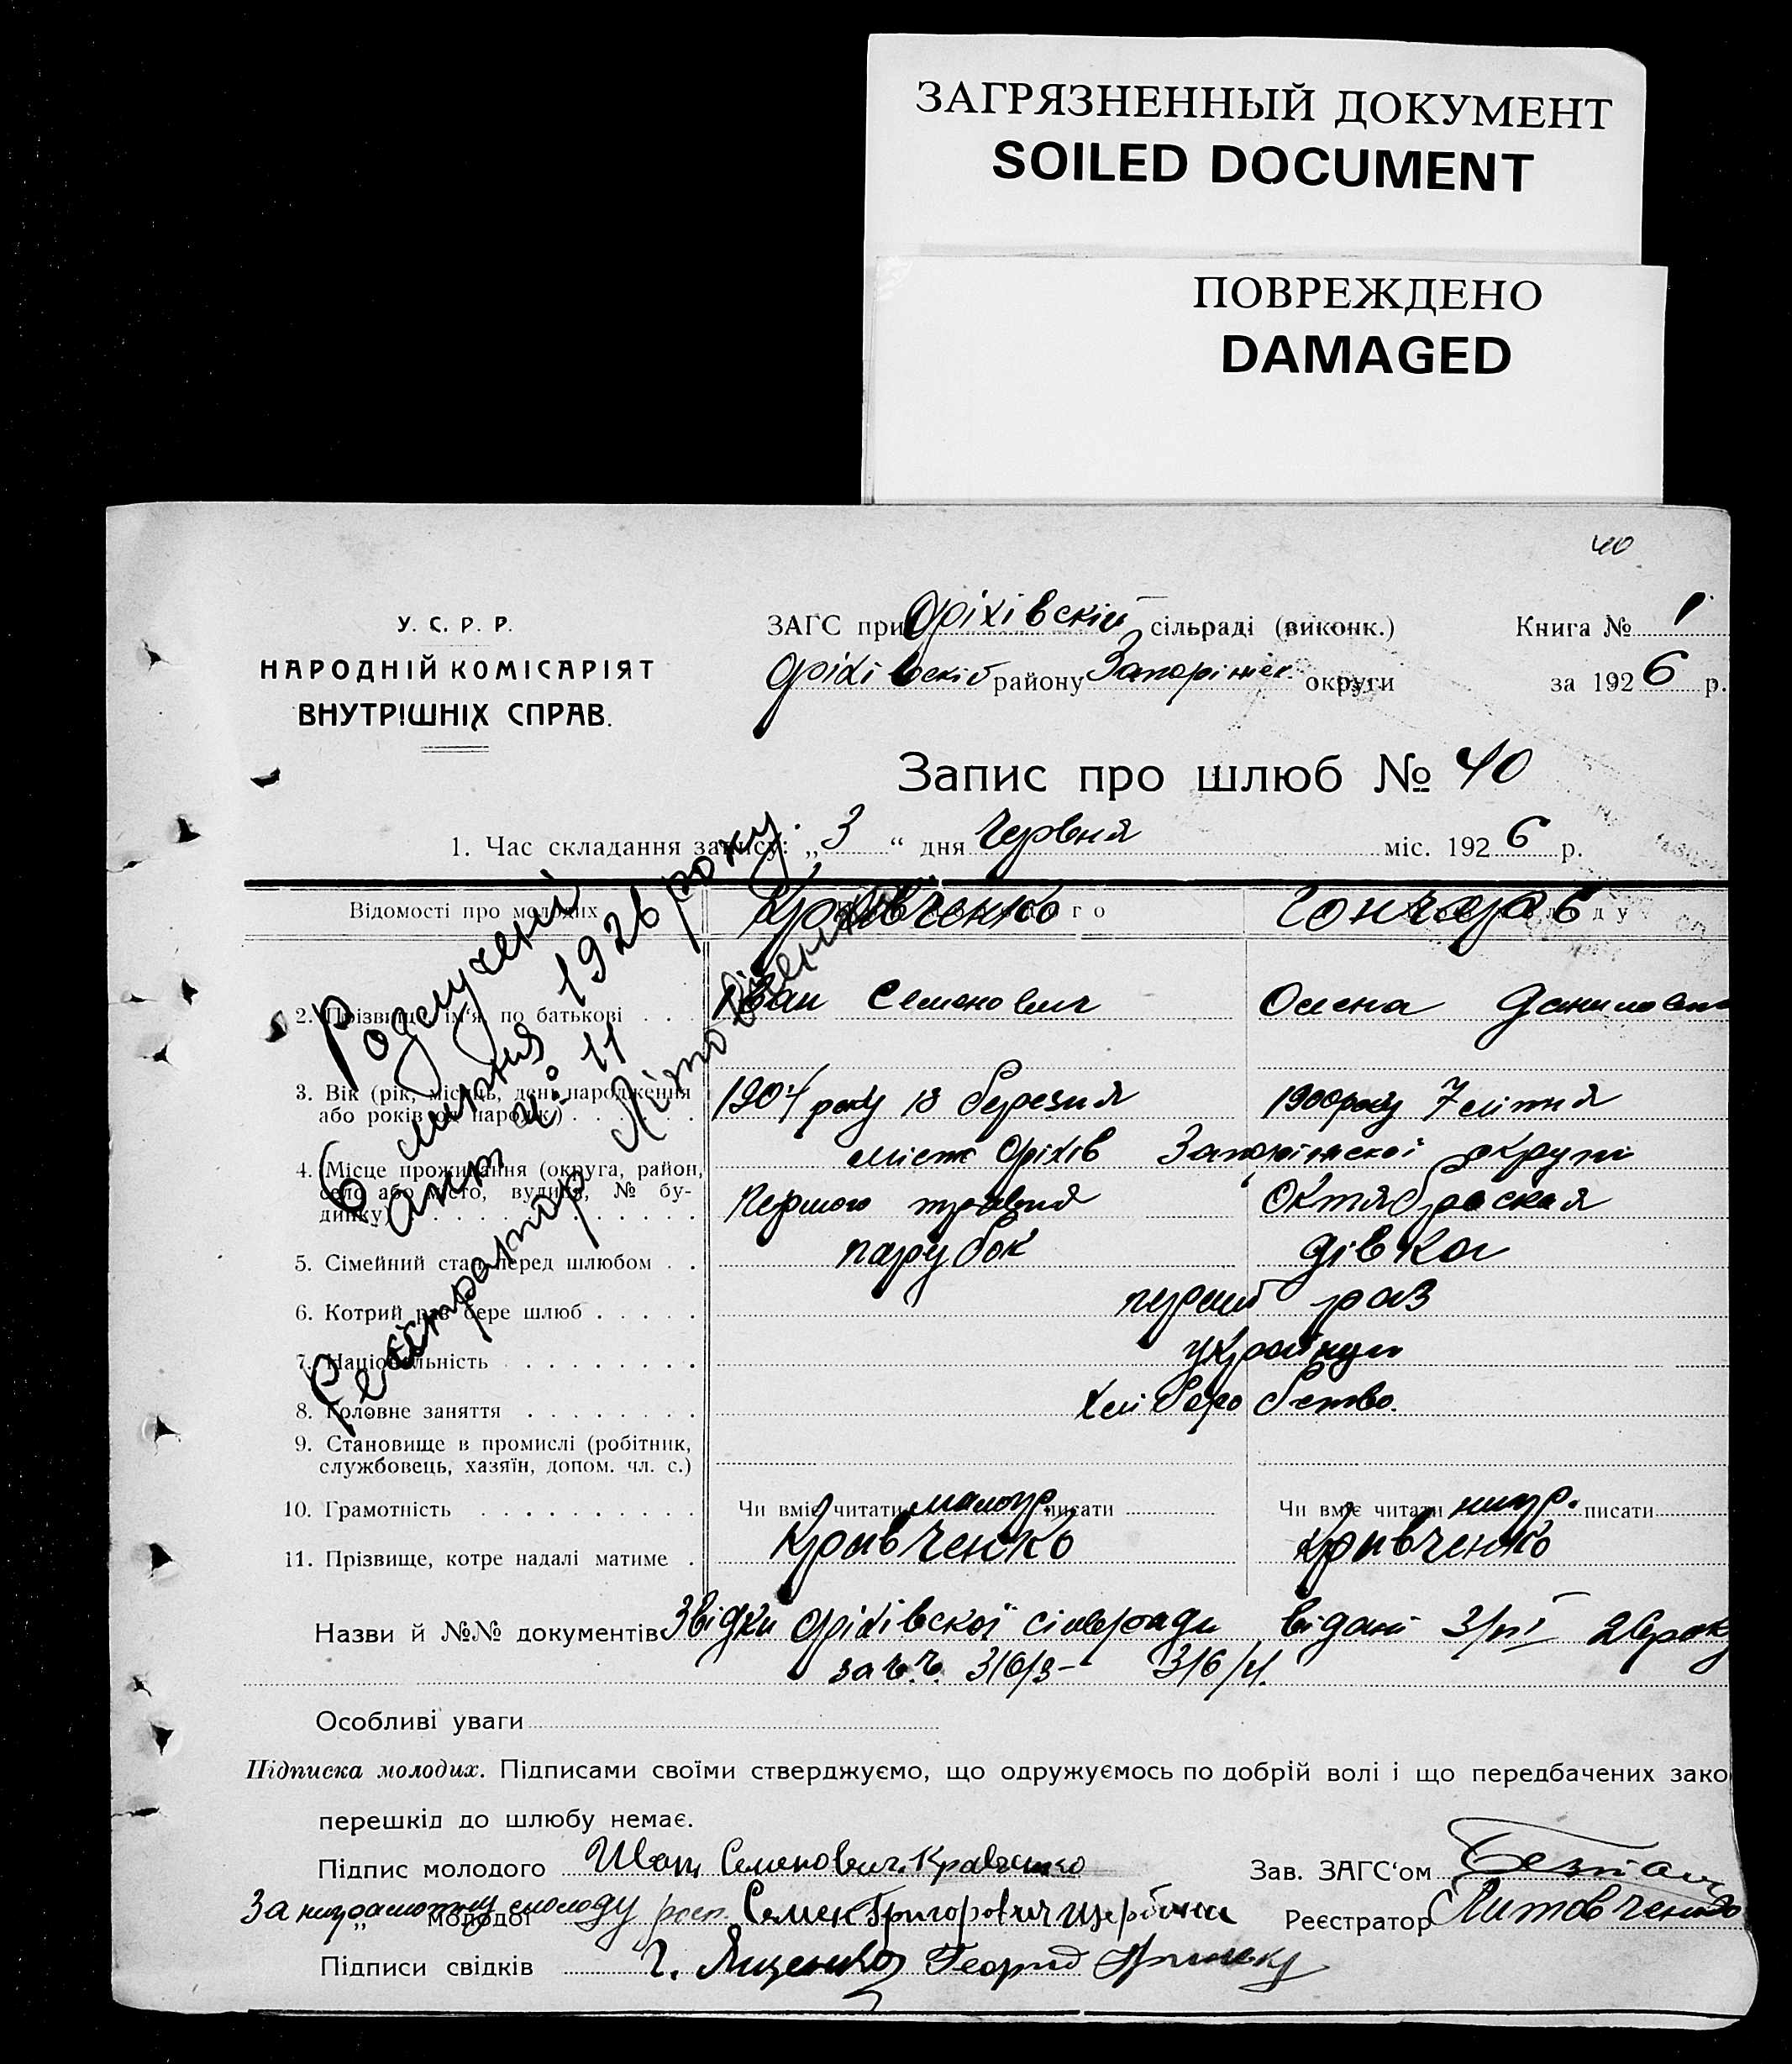 ЗАГРЯЗНЕННЫЙ ДОКУМЕНТ
SOILED DOCUMENT
ПОВРЕЖДЕНО
DAMAGED
40
У. С. Р. Р.
НАРОДНІЙ КОМІСАРІЯТ
ВНУТРІШНІХ СПРАВ.
ЗАГС при Оріхівскій сільраді (виконк.) Книга № 1
Оріхівскій району Запоріжск. округи за 1926 р.
Запис про шлюб № 40
1. Час складання запису: „3“ дня Червня міс. 1926 р.
Розлучений
6 липня 1926 року
акт № 11
Реєстратор Літовченко
Відомості про молодих Кравченко Гончарова
2. Прізвище, ім'я, по батькові . . . Іван Семенович Олена Данилова
3. Вік (рік, місяць, день народження 1904 року 18 березня 1900 року 7 літня
або років од народж.) . . . . . .
4. (Місце проживання (округа, район, місто Оріхів Запоріжскої округи
село або місто, вулиця, № бу- Першого травня Октябрьская
динку) . . . . . . . . . . . .
5. Сімейний стан перед шлюбом . . парубок дівка
6. Котрий раз бере шлюб . . . . . перший раз
7. Національність . . . . . . . . українци
8. Головне заняття . . . . . . . . хліборобство.
9. Становище в промислі (робітник,
службовець, хазяїн, допом. чл. с.)
10. Грамотність . . . . . . . . . . Чи вміє читати малогр. писати Чи вміє читати нигр. писати
11. Прізвище, котре надалі матиме . Кравченко Кравченко
Назви й №№ документів Звідки Оріхівскої сільради відані 3/VI 26 року
за ч.ч. 316/3 – 316/4.
Особливі уваги
Підписка молодих. Підписами своїми стверджуємо, що одружуємось по добрій волі і що передбачених зако
перешкід до шлюбу немає.
Підпис молодого Иван Семенович Кравченко Зав. ЗАГС'ом
За ниграмотну молоду росп. Семен Григорович Щербина Реєстратор Литовченко
„ молодої
Підписи свідків Г. Яценко Георгід